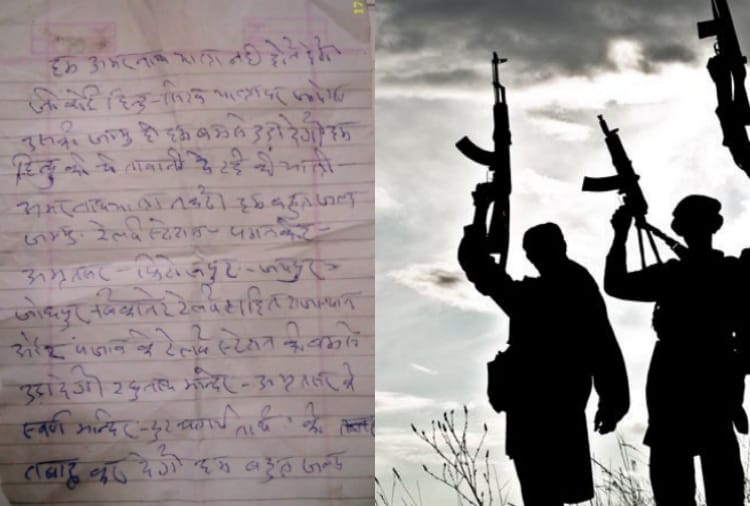 हम अमरनाथ यात्रा नही होने देगे
जो कोई हिन्दु-सिख यात्रा पर
जम्मु हम बम से उडा देगी हम
हिन्दु को चेतावनी दे रहे की
अमरनाथ यात्रा न करे। हम बहुत जल्द
जम्मु रेलवे स्टेशन - पठानकोट -
अमृतसर - फिरोजपुर - जयपुर -
जोधपुर - बिकानेर रेलवे सहित राजस्थान
और पंजाब के रेलवे स्टेशन को बम से
उडा देगी रघुनाथ मन्दिर - अमृतसर के
स्वर्ण मन्दिर - तीर्थ को
तबाह कर देगी हम बहुत जल्द